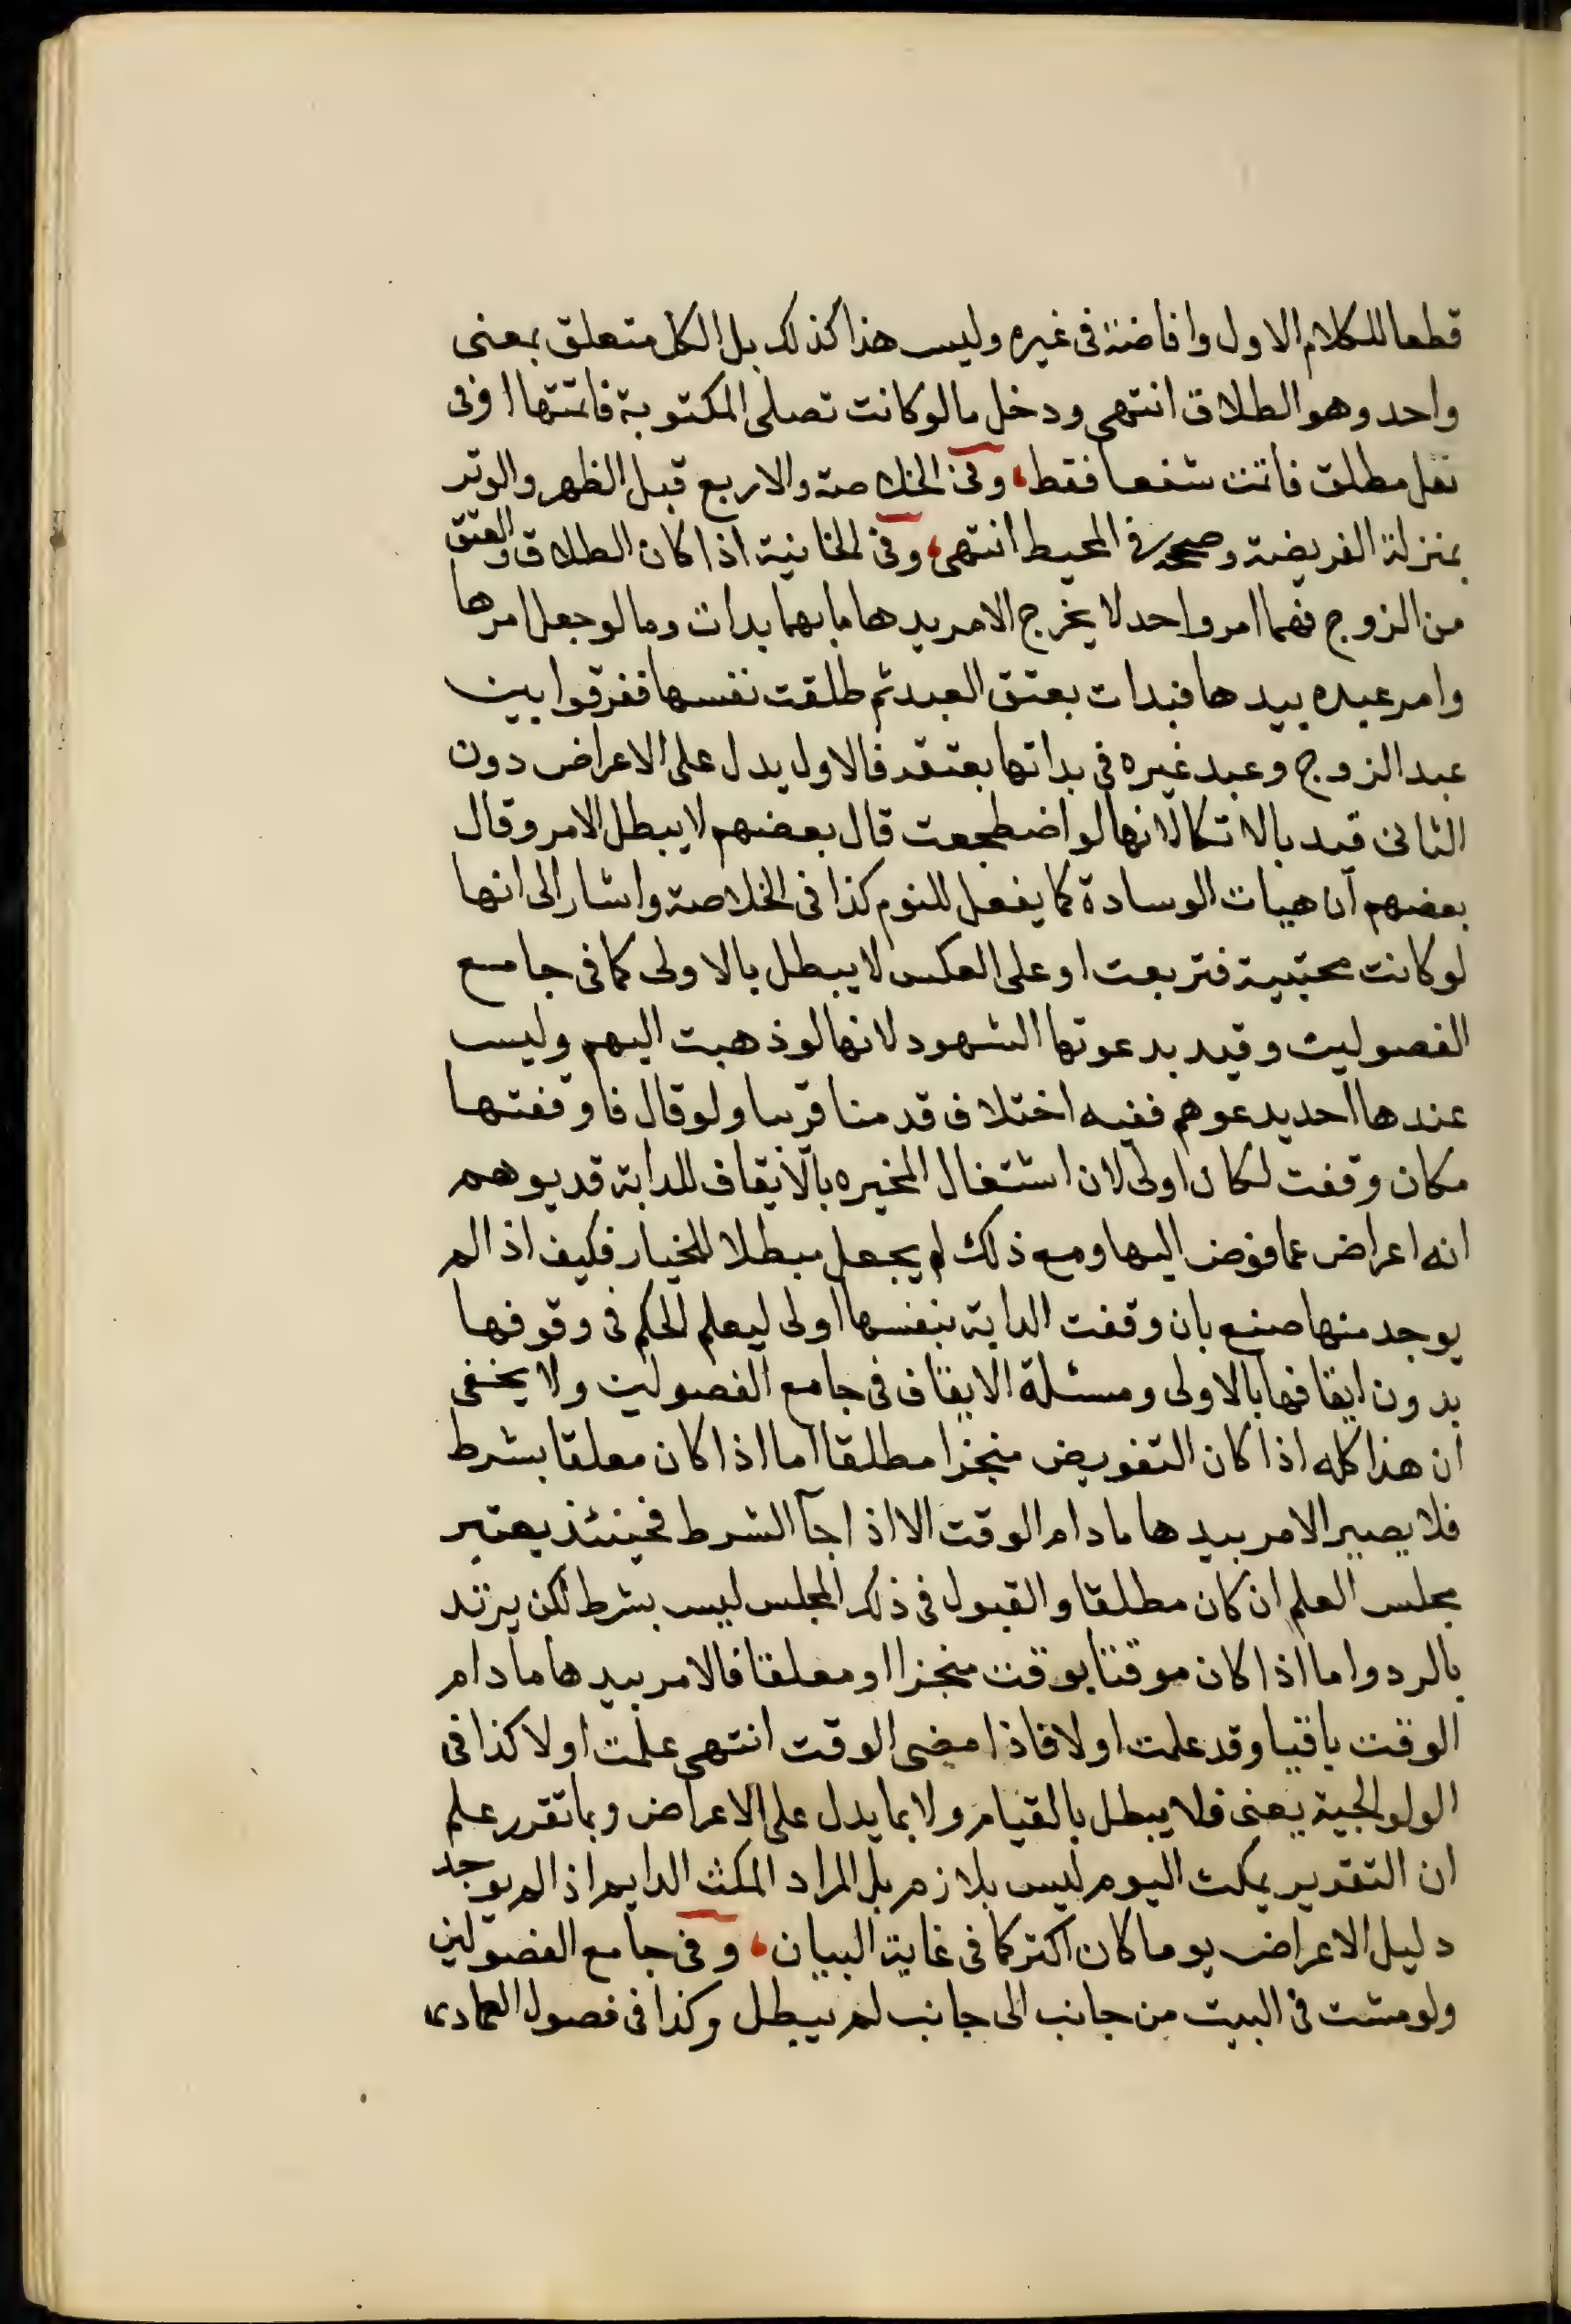 قطعا للكلام الاول وافاضة فى غيره وليس هذا كذلك بل الكل متعلق بمعنى
واحد وهو الطلاق انتهى ودخل ما لو كانت تصلى المكتوبة فاتمتها او فى
نفل مطلق فاتمت شفعا فقط، وفى الخلاصة والاربع قبل الظهر والوتر
بمنزلة الفريضة وصححه فى المحيط انتهى، وفى الخانية اذا كان الطلاق والعتق
من الزوج فهما امر واحد لا يخرج الامر يدها بايهما بدات وما لو جعل امرها
وامر عبده بيدها فبدات بعتق العبد ثم طلقت نفسها ففرقوا بين
عبد الزوج وعبد غيره فى بداتها بعتقه فالاول يدل على الاعراض دون
الثانى قيد بالاتكا لانها لو اضطجعت قال بعضهم لا يبطل الامر وقال
بعضهم ان هيات الوسادة كما يفعل للنوم كذا فى الخلاصة واشار الى انها
لو كانت محتبية فتربعت او على العكس لا يبطل بالاولى كما فى جامع
الفصولين وقيد بدعوتها الشهود لانها لو ذهبت اليهم وليس
عندها احد يدعوهم ففيه اختلاف قدمنا قريبا ولو قال فاوقفتها
مكان وقفت لكان اولى لان اشتغال المخيره بالايقاف للدابة قد يوهم
انه اعراض عما فوض اليها ومع ذلك لم يجعل مبطلا للخيار فكيف اذا لم
يوجد منها صنع بان وقفت الدابة بنفسها اولى ليعلم الحكم فى وقوفها
بدون ايقافها بالاولى ومسئلة الايقاف فى جامع الفصولين ولا يخفى
ان هذا كله اذا كان التفويض منجزا مطلقا اما اذا كان معلقا بشرط
فلا يصير الامر بيدها ما دام الوقت الا اذا جآ الشرط فحينئذ يعتبر
مجلس العلم ان كان مطلقا والقبول فى ذلك المجلس ليس بشرط لكن يرتد
بالرد واما اذا كان موقتا بوقت منجزا او معلقا فالامر بيدها ما دام
الوقت باقيا وقد علمت اولا فاذا مضى الوقت انتهى علمت اولا كذا فى
الولوالجية يعنى فلا يبطل بالقيام ولا بما يدل على الاعراض وبما تقرر علم
ان التقدير بمكث اليوم ليس بلازم بل المراد المكث الدايم اذا لم يوجد
دليل الاعراض يوما كان اكثر كما فى غاية البيان، وفى جامع الفصولين
ولو مشت فى البيت من جانب الى جانب لم يبطل وكذا فى فصول العمادى